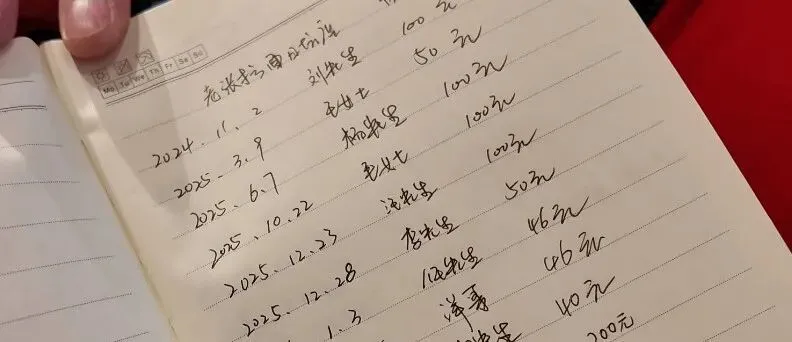 Mo Tu We Th Fr Sa Su
老张拉面
2024.11.2 刘先生 100元
2025.3.9 王女士 50元
2025.6.7 杨先生 100元
2025.10.22 女士 100元
2025.12.23 汪先生 100元
2025.12.28 李先生 50元
1.3 先生 46元
洋哥 46元
先生 40元
200元